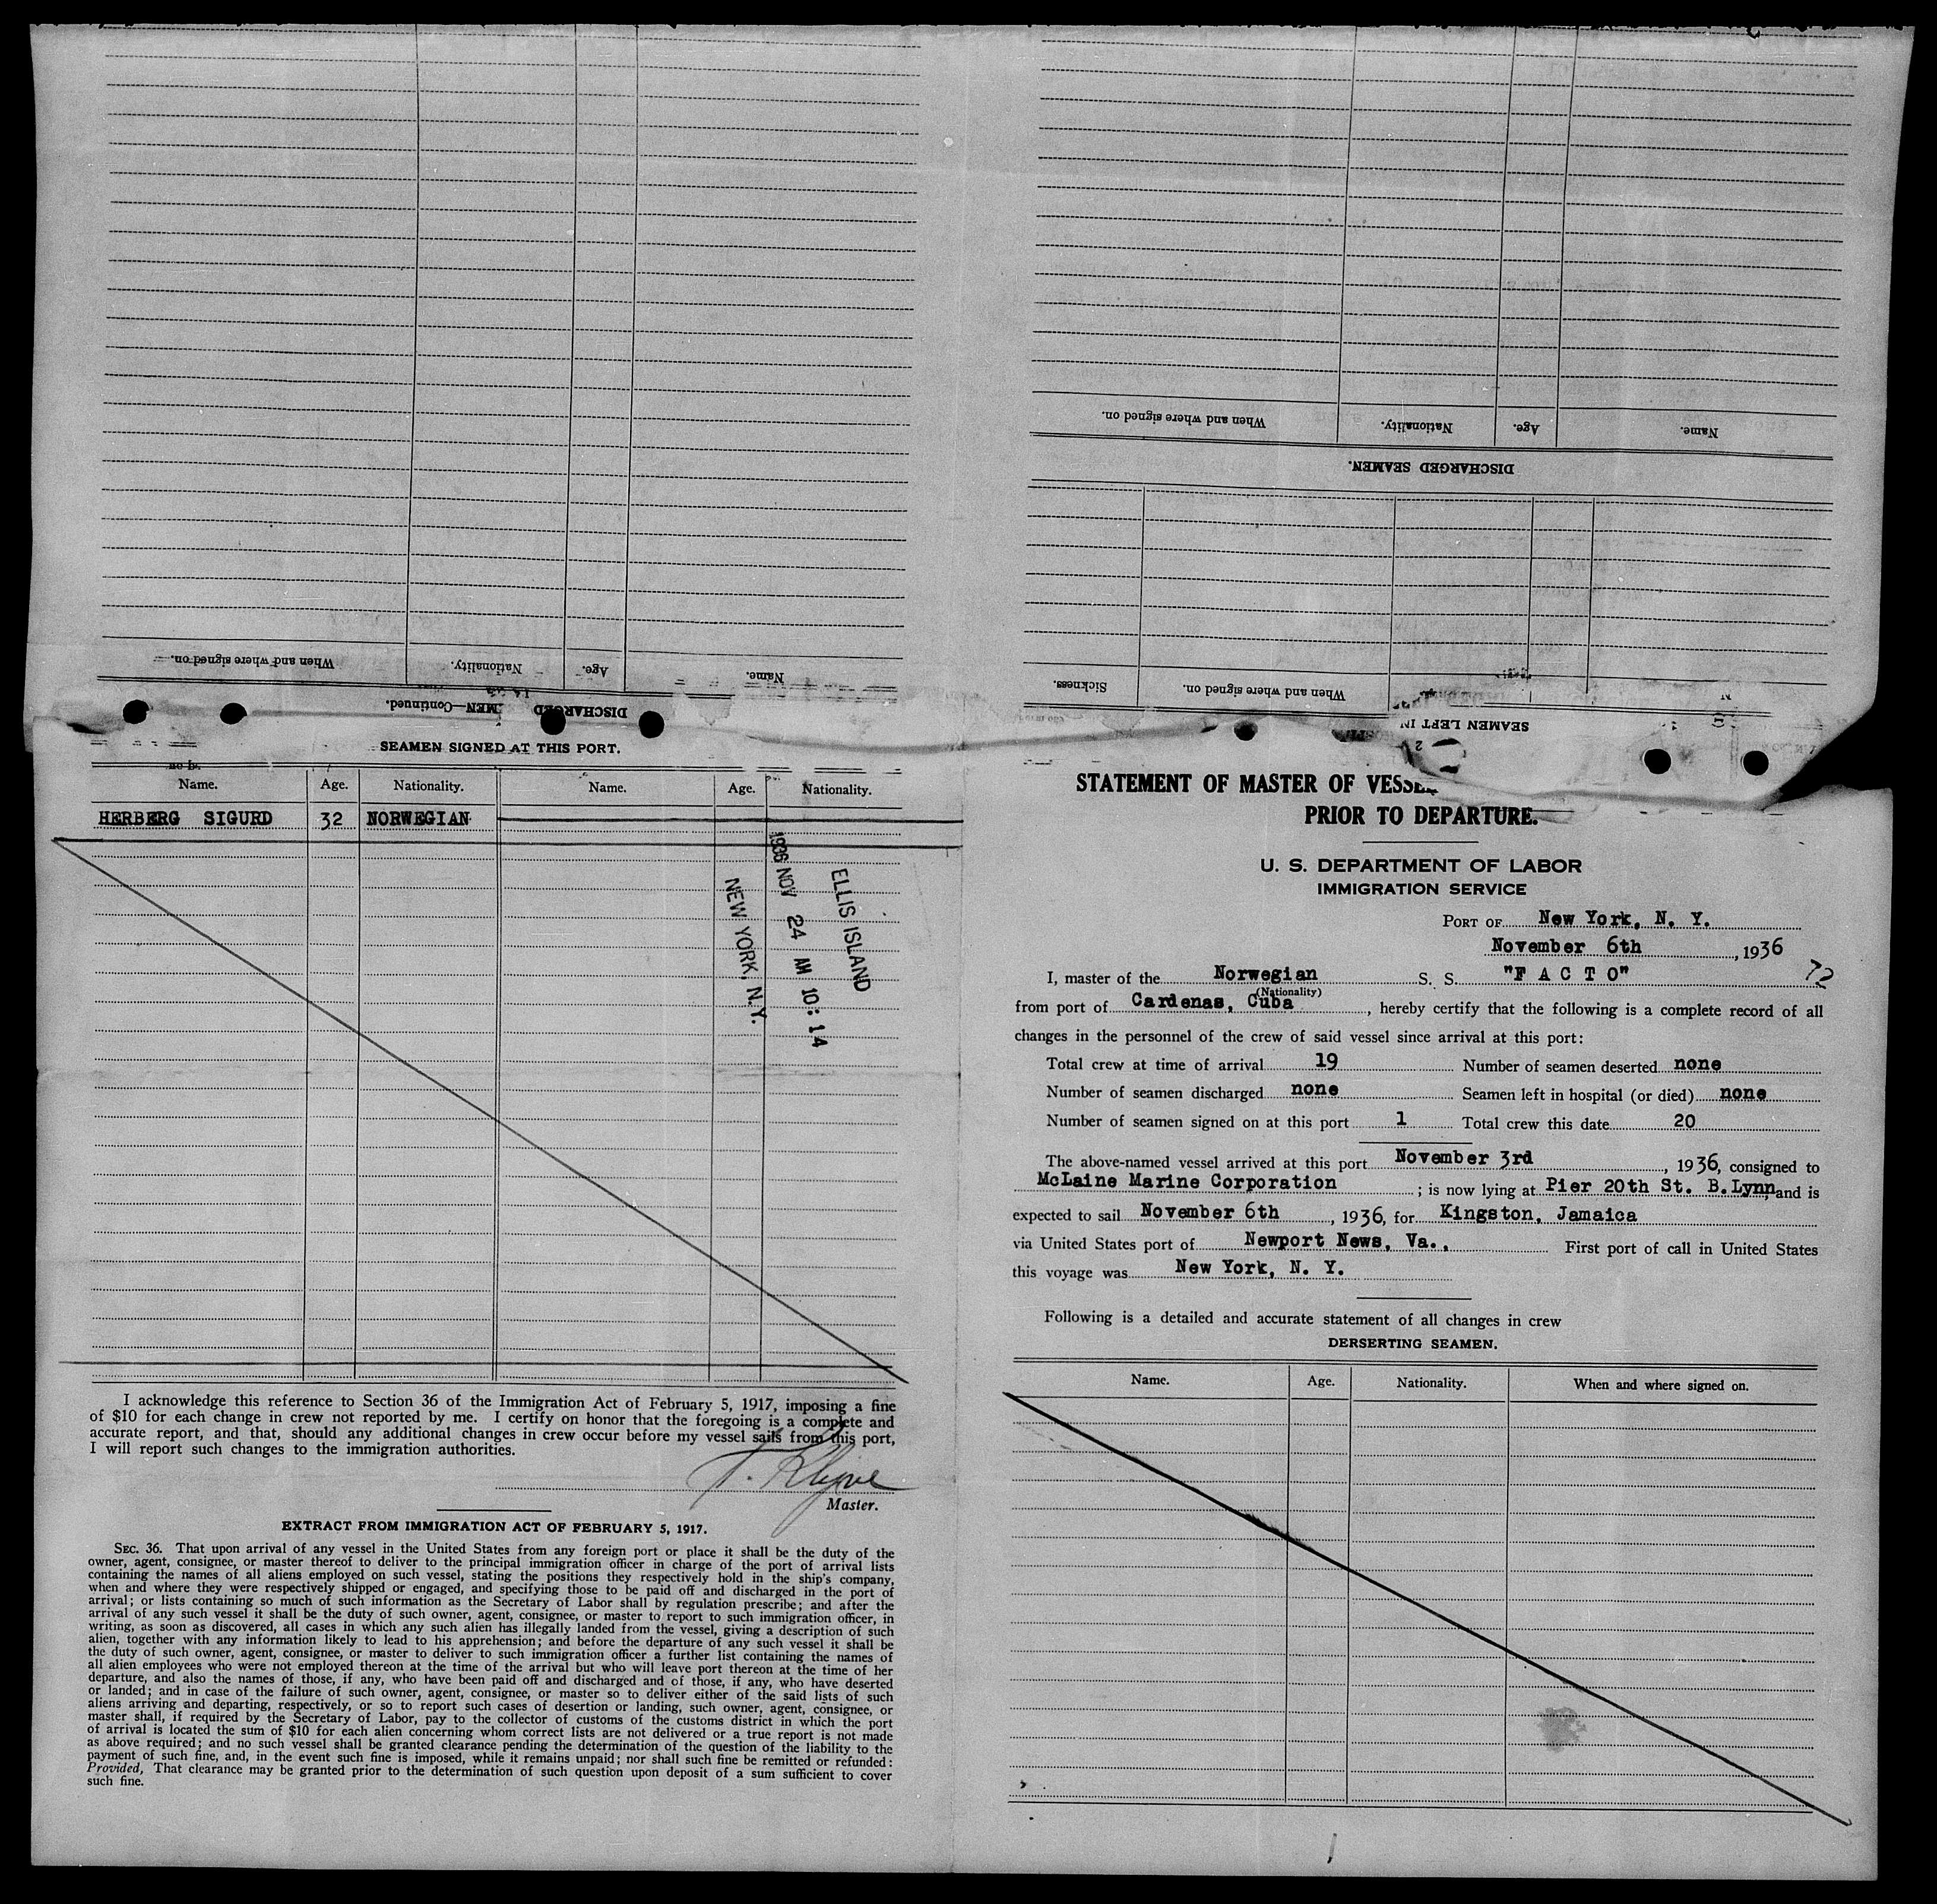 When and where signed on.
Nationality.
Age.
Name.
DISCHARGED SEAMEN.
Name.
Age.
Nationality.
When and where signed on.
DISCHARGED SEAMEN.—Continued.
Sickness.
When and where signed on.
SEAMEN LEFT IN
SEAMEN SIGNED AT THIS PORT.
Name. Age. Nationality. Name. Age. Nationality.
HERBERG SIGURD 32 NORWEGIAN
ELLIS ISLAND
1936 NOV 24 AM 10:14
NEW YORK, N.Y.
I acknowledge this reference to Section 36 of the Immigration Act of February 5, 1917, imposing a fine
of $10 for each change in crew not reported by me. I certify on honor that the foregoing is a complete and
accurate report, and that, should any additional changes in crew occur before my vessel sails from this port,
I will report such changes to the immigration authorities.
Master.
EXTRACT FROM IMMIGRATION ACT OF FEBRUARY 5, 1917.
SEC. 36. That upon arrival of any vessel in the United States from any foreign port or place it shall be the duty of the
owner, agent, consignee, or master thereof to deliver to the principal immigration officer in charge of the port of arrival lists
containing the names of all aliens employed on such vessel, stating the positions they respectively hold in the ship's company,
when and where they were respectively shipped or engaged, and specifying those to be paid off and discharged in the port of
arrival; or lists containing so much of such information as the Secretary of Labor shall by regulation prescribe; and after the
arrival of any such vessel it shall be the duty of such owner, agent, consignee, or master to report to such immigration officer, in
writing, as soon as discovered, all cases in which any such alien has illegally landed from the vessel, giving a description of such
alien, together with any information likely to lead to his apprehension; and before the departure of any such vessel it shall be
the duty of such owner, agent, consignee, or master to deliver to such immigration officer a further list containing the names of
all alien employees who were not employed thereon at the time of the arrival but who will leave port thereon at the time of her
departure, and also the names of those, if any, who have been paid off and discharged and of those, if any, who have deserted
or landed; and in case of the failure of such owner, agent, consignee, or master so to deliver either of the said lists of such
aliens arriving and departing, respectively, or so to report such cases of desertion or landing, such owner, agent, consignee, or
master shall, if required by the Secretary of Labor, pay to the collector of customs of the customs district in which the port
of arrival is located the sum of $10 for each alien concerning whom correct lists are not delivered or a true report is not made
as above required; and no such vessel shall be granted clearance pending the determination of the question of the liability to the
payment of such fine, and, in the event such fine is imposed, while it remains unpaid; nor shall such fine be remitted or refunded:
Provided, That clearance may be granted prior to the determination of such question upon deposit of a sum sufficient to cover
such fine.
STATEMENT OF MASTER OF VESSEL
PRIOR TO DEPARTURE.
U. S. DEPARTMENT OF LABOR
IMMIGRATION SERVICE
PORT OF New York, N. Y.
November 6th, 1936
I, master of the Norwegian S. S. "F A C T O" 72
(Nationality)
from port of Cardenas, Cuba, hereby certify that the following is a complete record of all
changes in the personnel of the crew of said vessel since arrival at this port:
Total crew at time of arrival 19 Number of seamen deserted none
Number of seamen discharged none Seamen left in hospital (or died) none
Number of seamen signed on at this port 1 Total crew this date 20
The above-named vessel arrived at this port November 3rd, 1936, consigned to
McLaine Marine Corporation; is now lying at Pier 20th St. B.Lynn, and is
expected to sail November 6th, 1936, for Kingston, Jamaica
via United States port of Newport News, Va., First port of call in United States
this voyage was New York, N. Y.
Following is a detailed and accurate statement of all changes in crew
DERSERTING SEAMEN.
Name. Age. Nationality. When and where signed on.